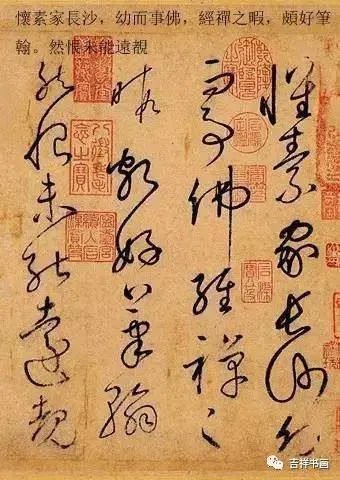 懷素家長沙，幼而事佛，經禪之暇，頗好筆
翰。然恨未能遠覩
懷素家長沙幼
而事佛經禪之
暇頗好筆翰
然恨未能遠覩
吉祥书画